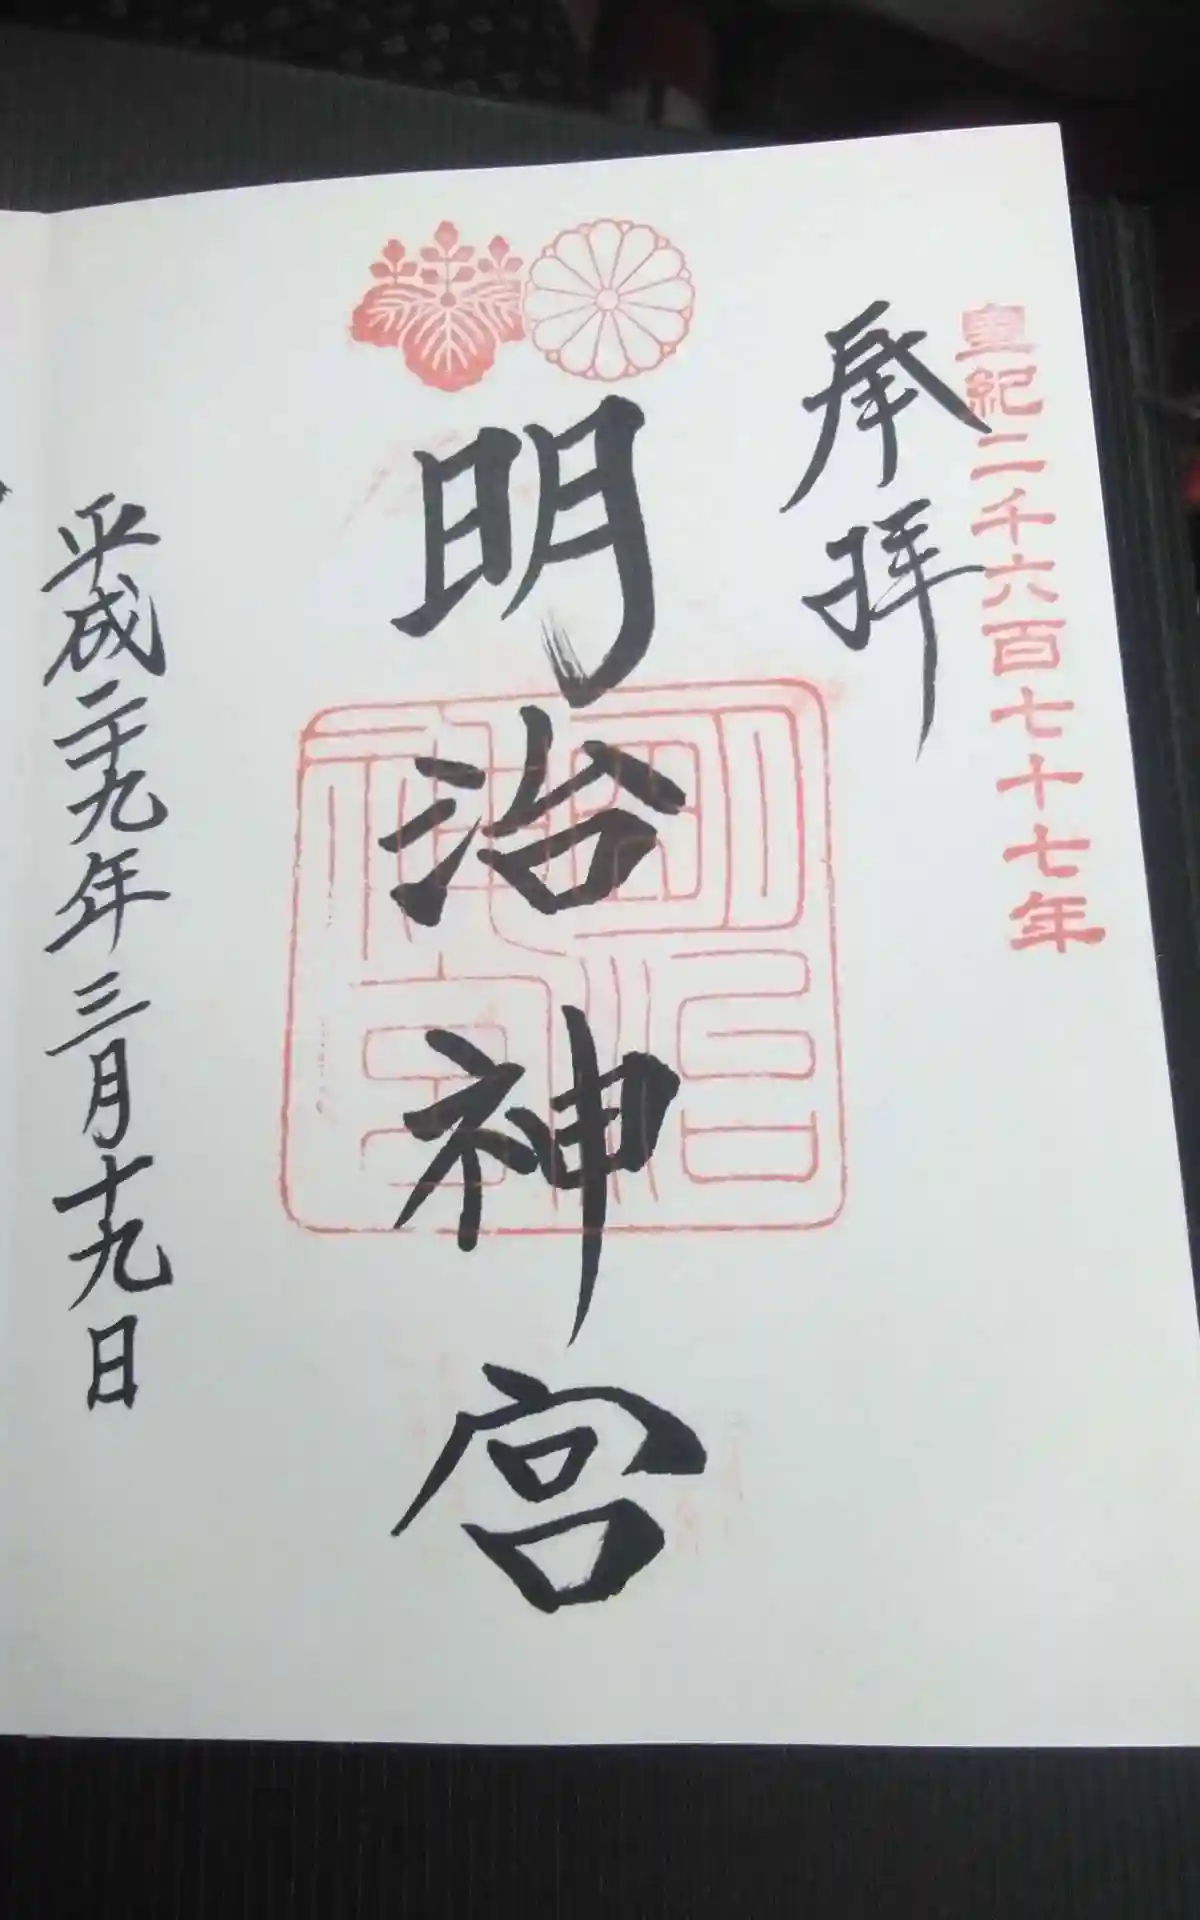 皇紀二千六百七十七年
奉拝
明治神宮
明治神宮
平成二十九年三月十九日